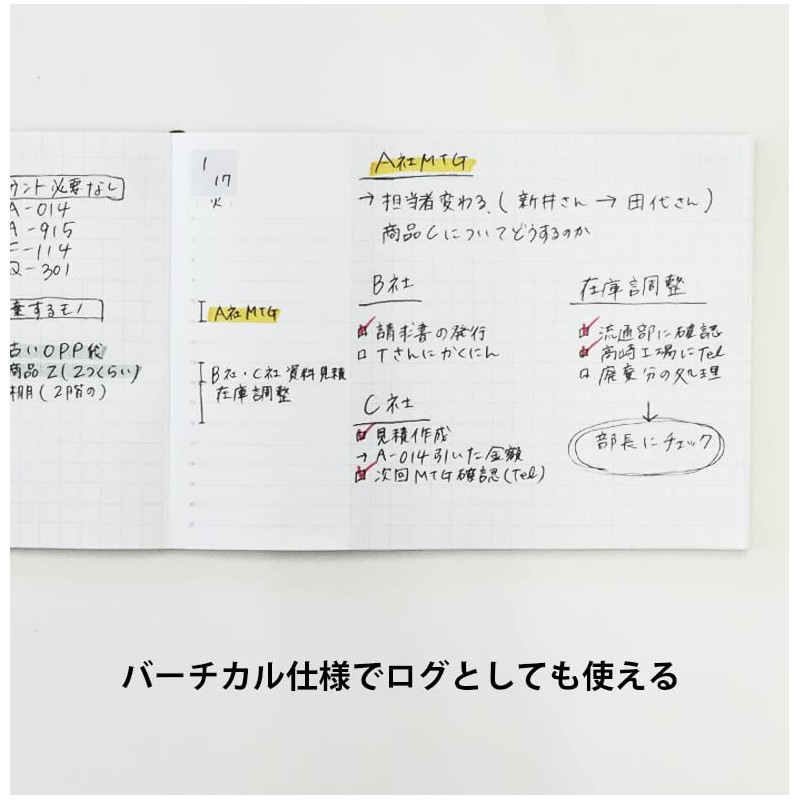 ウント必要なし
A-014
A-915
F-114
Q-301
産するモノ
古いOPP袋
商品Z(2つくらい)
棚(2階の)
1
17
火
A社MTG
B社・C社資料見積
在庫調整
A社MTG
→担当者変わる、(新井さん→田代さん)
商品Cについてどうするのか
B社
請求書の発行
Tさんにかくにん
C社
見積作成
→A-014引いた金額
次回MTG確認(Tel)
在庫調整
流通部に確認
高崎工場にTel
廃棄分の処理
↓
部長にチェック
バーチカル仕様でログとしても使える